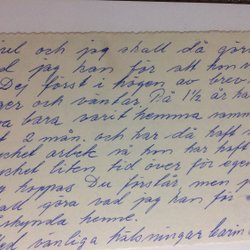 och jag skall då göra
jag kan för att hon
Det först i högen av brev
och väntar. På 1½ år ha
bara varit hemma
2 mån. och har då haft
arbete så hon har haft
liten tid över för egen
hoppas Du förstår, men
göra vad jag kan för
skynda henne.
vänliga hälsningar